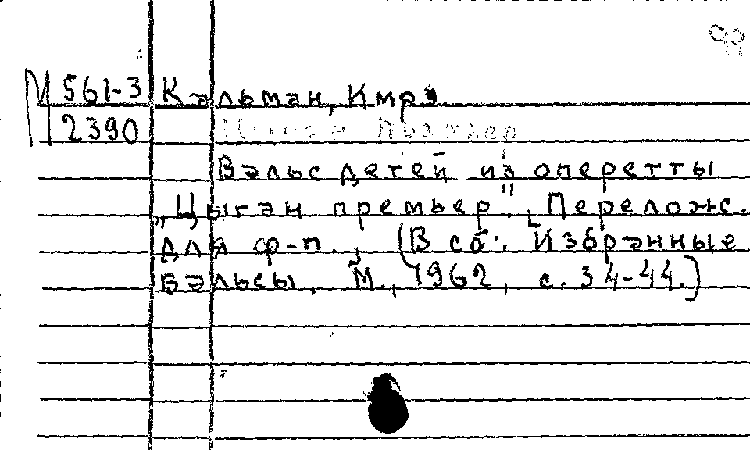 М 561-3 Кальман, Имрэ
2390 Цыган премьер
Вальс детей из оперетты
„Цыган премьер". [Перелож.
для ф-п.] (В сб.: Избранные
вальсы. М., 1962, с. 34-44.)